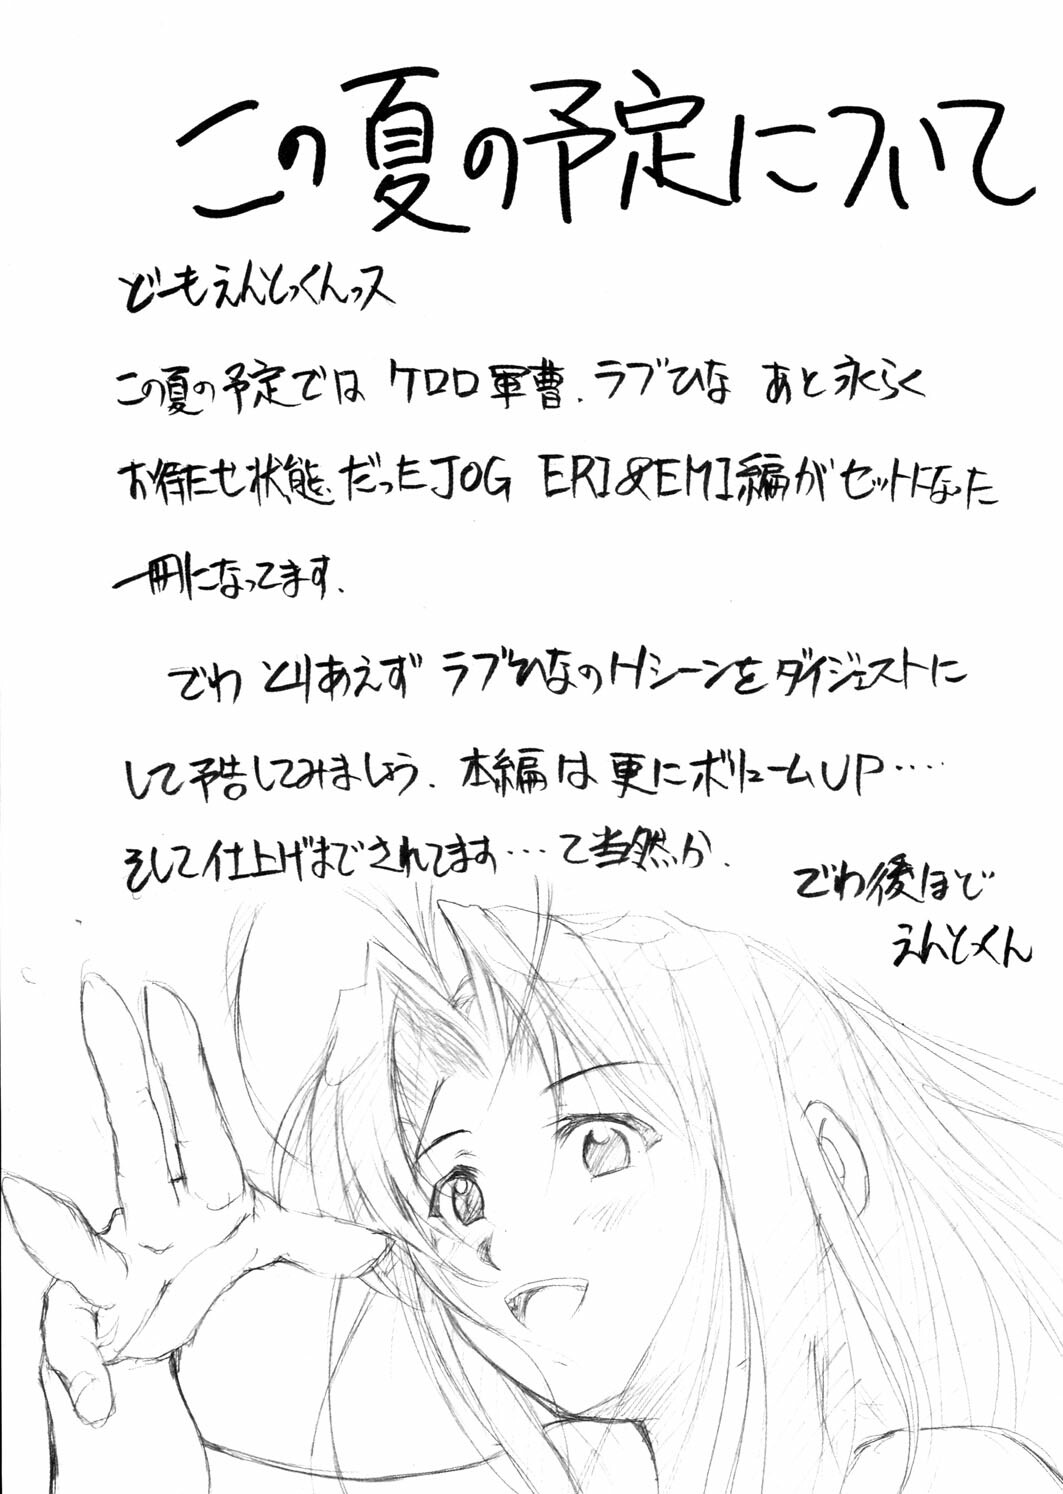 この夏の予定について
どーもえんとっくんっス
この夏の予定では ケロロ軍曹、ラブひな あと永らく
お待たせ状態だったJOG ERI&EMI編がセットになった
一冊になってます、
でわ とりあえず ラブひなのHシーンをダイジェストに
して予告してみましょう、本編は更にボリュームUP‥‥
そして仕上げまでされてます‥‥て当然か、
でわ後ほど
えんとっくん